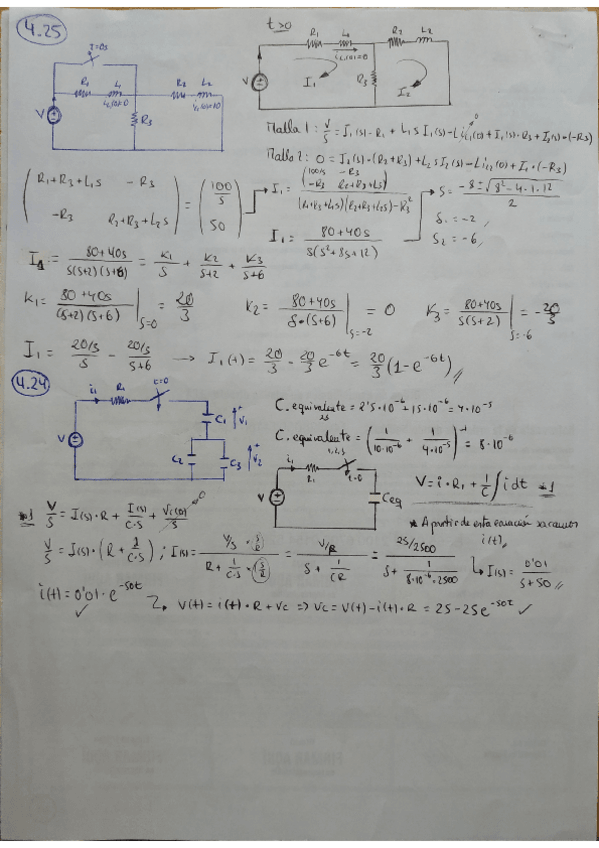 4.25
t=0s
R1 L1 R2 L2
iL1(0)=0 iL2(0)=0
V R3
t>0
R1 L1 R2 L2
iL1(0)=0
V I1 R3 I2
Malla 1: V/s = I1(s)·R1 + L1 s I1(s) - L iL1(0) + I1(s)·R3 + I2(s)·(-R3)
Malla 2: 0 = I2(s)·(R2+R3) + L2 s I2(s) - L iL2(0) + I1·(-R3)
(R1+R3+L1s -R3; -R3 R2+R3+L2s) = (100/s; 50)
I1 = (100/s -R3; -R3 R2+R3+L2s) / (R1+R3+L1s)(R2+R3+L2s)-R3²
s = (-8±√(8²-4·1·12))/2
I1 = (80+40s)/(s(s²+8s+12))
s1=-2
s2=-6
I1 = (80+40s)/(s(s+2)(s+6)) = K1/s + K2/(s+2) + K3/(s+6)
K1 = (80+40s)/((s+2)(s+6)) | s=0 = 20/3
K2 = (80+40s)/(s·(s+6)) | s=-2 = 0
K3 = (80+40s)/(s(s+2)) | s=-6 = -20/3
I1 = (20/3)/s - (20/3)/(s+6) → I1(t) = 20/3 - 20/3 e^-6t = 20/3 (1-e^-6t)
4.24
i1 R1 t=0
V C1 V1
C2 C3 V2
C.equivalente 2,3 = 2'5·10^-6 + 15·10^-6 = 4·10^-5
C.equivalente 1,2,3 = (1/(10·10^-6) + 1/(4·10^-5))^-1 = 8·10^-6
i1 R1 t=0
V Ceq
V = i·R1 + 1/C ∫ i dt *1
* A partir de esta ecuación sacamos i(t)
*1 V/s = I(s)·R + I(s)/(C·s) + Vc(0)/s
V/s = I(s)·(R + 1/(C·s)); I(s) = (V/s ·s/R)/(R + 1/(C·s) ·(s/R)) = (V/R)/(s + 1/(CR)) = (25/2500)/(s + 1/(8·10^-6·2500)) ↳ I(s) = 0'01/(s+50)
i(t) = 0'01·e^-50t
V(t) = i(t)·R + Vc => Vc = V(t) - i(t)·R = 25 - 25e^-50t ✓